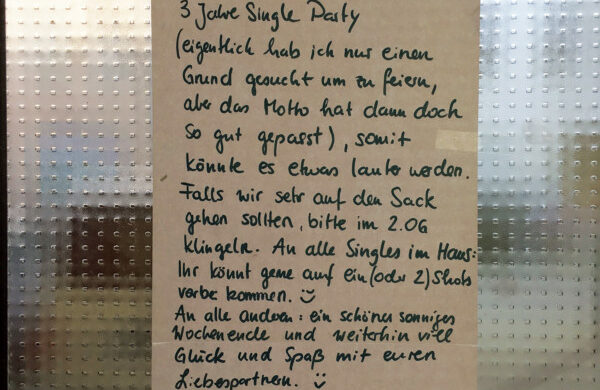 3 Jahre Single Party
(eigentlich hab ich nur einen
Grund gesucht um zu feiern,
aber das Motto hat dann doch
so gut gepasst), somit
könnte es etwas lauter werden.
Falls wir sehr auf den Sack
gehen sollten, bitte im 2.OG
klingeln. An alle Singles im Haus:
Ihr könnt gerne auf ein (oder 2) Shots
vorbei kommen. :)
An alle anderen: ein schönes sonniges
Wochenende und weiterhin viel
Glück und Spaß mit euren
Liebespartnern. :)